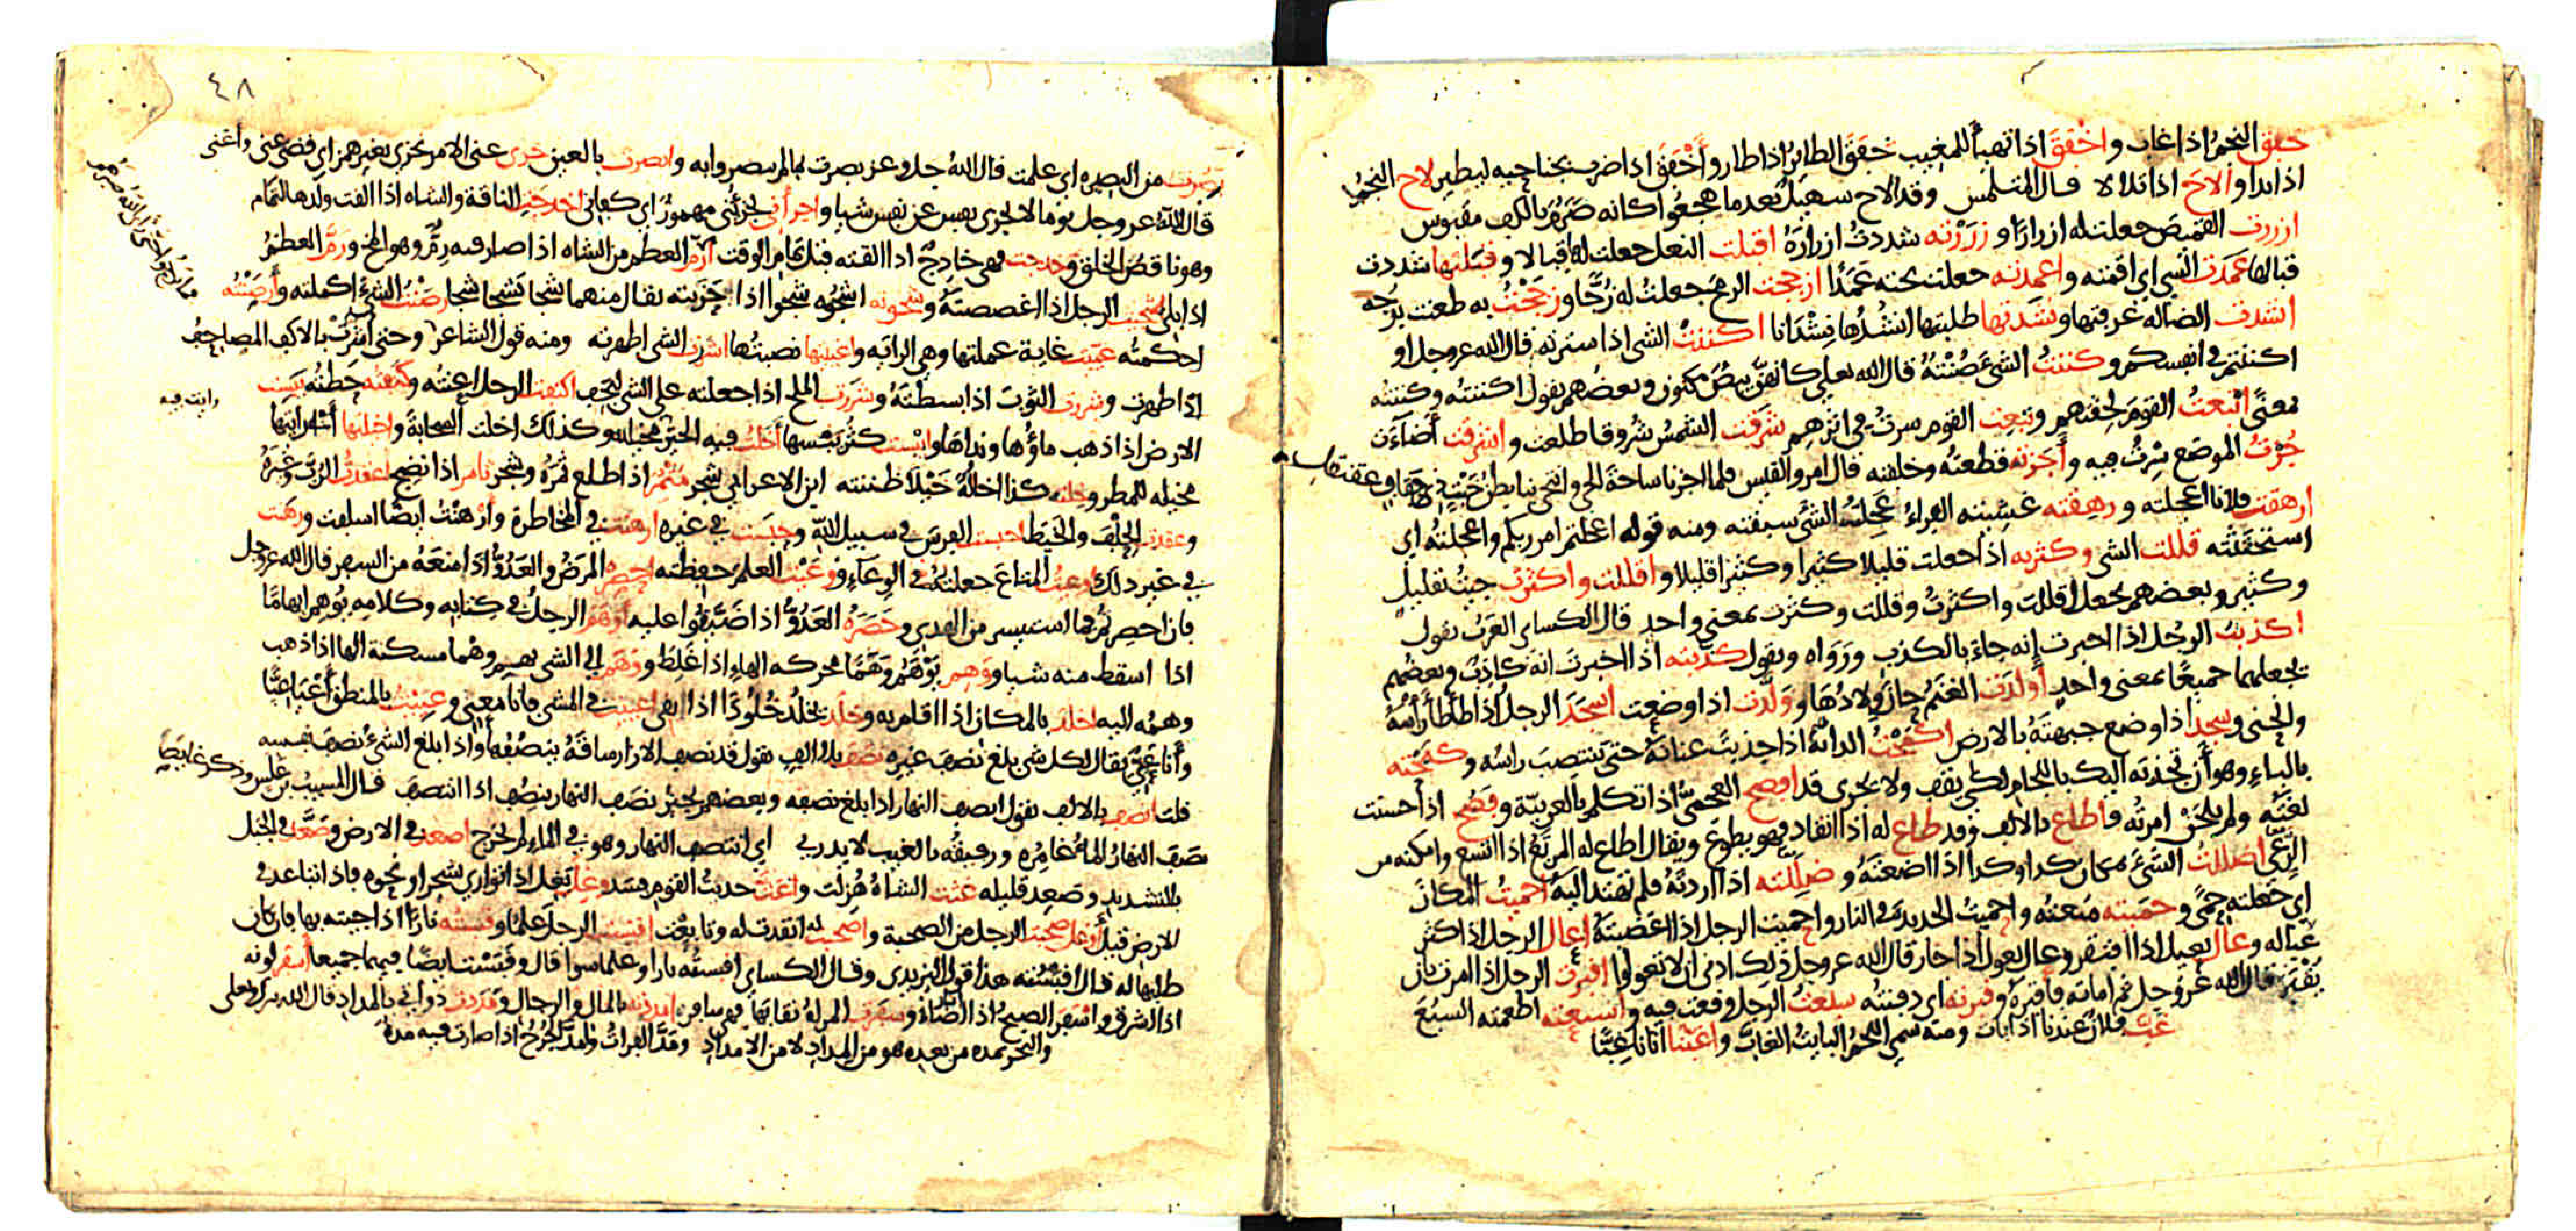 خفق النجم اذا غاب واخفق اذا تهيأ للمغيب خفق الطاير اذا طار وأخفق اذا ضرب بجناحيه ليطير لاح النجم
اذا بدا وألاح اذا تلالا قال المتلمس وقد ألاح سهيل بعدما هجعوا كانه ضرم بالكف مقبوس
ازررت القميص جعلت له ازرارا وزررته شددت ازراره اقبلت النعل جعلت لها قبالا وقبلتها شددت
قبالها عمدت الشي اي اقمته واعمدته جعلت تحته عمدا ازججت الرمح جعلت له زجا وزججت به طعنت بزجه
انشدت الضالة عرفتها ونشدتها طلبتها انشدها نشدانا اكننت الشي اذا سترته قال الله عز وجل او
اكننتم في انفسكم وكننت الشئ صنته قال الله تعلى كانهن بيض مكنون وبعضهم يقول اكننته وكننته
بمعنى اتبعت القوم لحقتهم وتبعت القوم سرت في اثرهم شرقت الشمس شروقا طلعت واشرقت أضاءت
جزت الموضع سرت فيه وأجزته قطعته وخلفته قال امرو القيس فلما اجزنا ساحة الحي وانتحى بنا بطن خبت
ارهقت فلانا اعجلته ورهقته غشيته الفراء عجلت الشئ سبقته ومنه قوله اعجلتم امر ربكم واعجلته اي
استحثثته قللت الشي وكثرته اذا جعلت قليلا كثيرا وكثيرا قليلا واقللت واكثرت جيت بقليل
وكثير وبعضهم يجعل اقللت واكثرت وقللت وكثرت بمعنى واحد قال الكساى العرب تقول
اكذبت الرجل اذا اخبرت إنه جاء بالكذب ورواه وتقول كذبته اذا اخبرت انه كاذب وبعضهم
يجعلهما جميعا بمعنى واحد أولدت الغنم حان ولادها وولدت اذا وضعت اسجد الرجل اذا طأطأ رأسه
وانحنى وسجد اذا وضع جبهته بالارض اكفحت الدابة اذا جذبت عنانه حتى ينتصب راسه وكفحته
بالباء وهو أن تجذبه اليك باللجام لكي يقف ولا يجرى قد افصح العجمي اذا تكلم بالعربية وفصح اذا حسنت
لغته ولم يلحن امرته فأطاع بالالف وقد طاع له اذا انقاد فهو يطوع ويقال اطاع له المرتع اذا اتسع وامكنه من
الرعي اضللت الشئ بمكان كدا وكدا اذا اضعته وضللته اذا اردته فلم تهتد اليه احميت المكان
اي جعلته حمى وحميته منعته واحميت الحديدة في النار واحميت الرجل اذا اغضبته اعال الرجل اذا كثر
عياله وعال يعيل اذا افتقر وعال يعول اذا جار قال الله عز وجل ذلك ادنى ان لا تعولوا اقبرت الرجل اذا امرت بان
يقبر قال الله عز وجل ثم اماته فأقبره وقبرته اي دفنته سبعت الرجل وقعت فيه واسبعته اطعمته السبع
غب فلان عندنا اذا بات ومنه سمي اللحم البايت الغاب واغبنا اتانا غبا
٤٨
بصرت من البصيره اي علمت قال الله جل وعز بصرت بما لم يبصروا به وابصرت بالعين جزى عنى الامر يجزى بغير همز اي قضى عنى وأغنى
قال الله عز وجل يوما لا تجزى نفس عن نفس شيا واجزأني يجزئني مهموز اي كفاني اخدجت الناقة والشاه اذا القت ولدها لتمام
وهو ناقص الخلق وخدجت فهي خادج اذا القته قبل تمام الوقت ارم العظم من الشاه اذا صار فيه رم وهو المخ ورم العظم
اذا بلي اشجيت الرجل اذا اغصصته وشجوته اشجوه شجوا اذا حزنته يقال منهما شجا يشجا شجا رصنت الشئ اكملته وأرصنته
احكمته غييت غاية عملتها وهي الراية واغييتها نصبتها اشررت الشي اظهرته ومنه قول الشاعر وحتى أشرت بالاكف المصاحف
اذا ظهرت وشررت الثوب اذا بسطته وشررت الملح اذا جعلته على الشي ليجف اكنفت الرجل اعنته وكنفته حطته يبست
الارض اذا ذهب ماؤها ونداها وايبست كثر يبسها أخلت فيه الخير مخيلة وكذلك اخلت السحابة واخيلتها أي رايتها
مخيله للمطر وخلت كذا اخاله خيلا ظننته ابن الاعرابي شجر مثمر اذا طلع ثمره وشجر ثامر اذا نضج اعقدت الرب وغيره
وعقدت الحلف والخيط احبست الفرس في سبيل الله وحبست في غيره ارهنت في المخاطرة وأرهنت ايضا اسلفت ورهنت
في غير ذلك اوعيت المتاع جعلته في الوعاء ووعيت العلم حفظته احصره المرض والعدو اذا منعه من السفر قال الله عز وجل
فان احصرتم فما استيسر من الهدى وحصره العدو اذا ضيقوا عليه اوهم الرجل في كتابه وكلامه يوهم ايهاما
اذا اسقط منه شيا ووهم يوهم وهما محركه الهاء اذا غلط ووهم الى الشي يهم وهما مسكنة الها اذا ذهب
وهمه اليه اخلد بالمكان اذا اقام به وخلد يخلد خلودا اذا بقي اعييت في المشي فانا معيي وعييت بالمنطق أعيا عيا
وأنا عيي يقال لكل شي بلغ نصف غيره نصف بلا الف تقول قد نصف الازار ساقه ينصفها واذا بلغ الشئ نصف نفسه
قلت انصف بالالف تقول انصف النهار اذا بلغ نصفه وبعضهم يجيز نصف النهار ينصف اذا انتصف قال المسيب بن علس وذكر غايصا
نصف النهار الماء غامره ورفيقه بالغيب لا يدري اي انتصف النهار وهو في الماء لم يخرج اصعد في الارض وصعد في الجبل
بالتشديد وصعد قليله غثت الشاة هزلت واغث حديث القوم فسد وغل يغل اذا توارى بشجر او نحوه فاذا تباعد في
الارض قيل أوغل صحبت الرجل من الصحبة واصحبت له انقدت له وتابعت اقبست الرجل علما وقبسته نارا اذا جيته بها فان كان
طلبها له قال اقبسته هذا قول اليزيدى وقال الكساى اقبسته نارا وعلما سوا قال وقبست ايضا فيهما جميعا أسفر لونه
اذا اشرق واسفر الصبح اذا اضاء وسفرت المراة نقابها فهي سافر امددته بالمال والرجال ومددت دواتي بالمداد قال الله تبارك وتعلى
والبحر يمده من بعده هو من المداد لا من الامداد ومد الفرات وامد الجرح اذا صارت فيه مدة